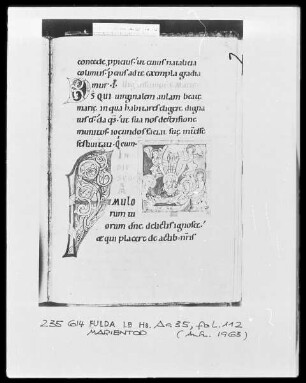 concede, ppicius. ut cuius natalicia
colimus. &eius ad te exempla gradia
mur. P
DS QUI uirginalem aulam beatę
marię in qua habitares eligere digna
tus es. da qs. ut sua nos defensione
munitos. iocundos faciat suę inter esse
festiuitati. Qui cum
FAMULO
rum tu
orum dne delictis ignosce.
ut qui placere de actib; nris
2
235 614 FULDA LB HS. Aa 35, fol. 112
MARIENTOD (Aufn. 1963)